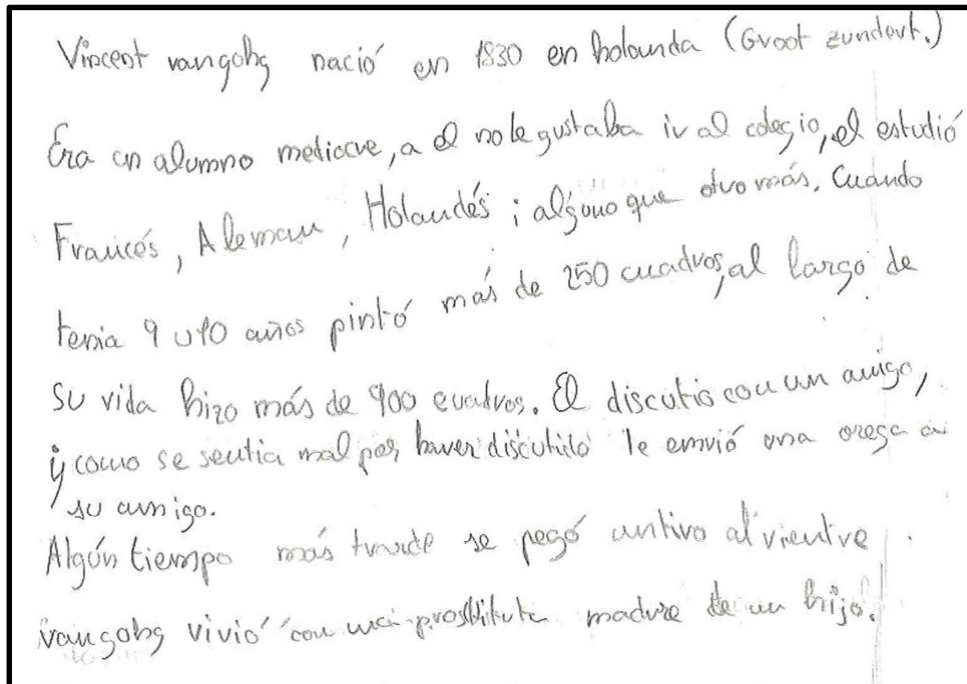 Vincent vangohg nació en 1830 en holanda (Groot zundert.)
Era un alumno mediocre, a el no le gustaba ir al colegio, el estudió
Francés, Aleman, Holandés i alguno que otro más. Cuando
tenia 9 u 10 años pintó más de 250 cuadros, al largo de
su vida hizo más de 900 cuadros. El discutio con un amigo,
y como se sentia mal por haver discutido le envió una oreja a
su amigo.
Algún tiempo más trarde se pegó un tiro al vientre.
vangohg vivió con una prostituta madre de un hijo.